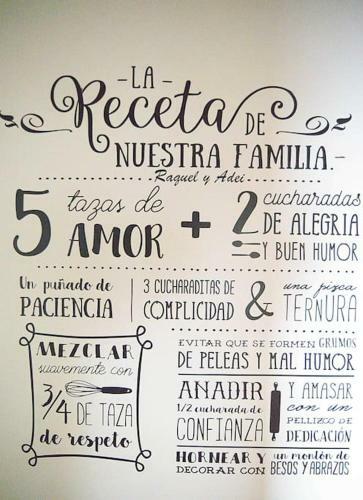 -LA-
Receta DE
NUESTRA FAMILIA.-
Raquel y Adei
5 tazas de AMOR + 2 cucharadas DE ALEGRIA Y BUEN HUMOR
Un puñado de PACIENCIA
3 CUCHARADITAS DE COMPLICIDAD & una pizca TERNURA
MEZCLAR
suavemente con
3/4 DE TAZA
de respeto
EVITAR QUE SE FORMEN GRUMOS
DE PELEAS Y MAL HUMOR
AÑADIR
1/2 cucharada de
CONFIANZA
Y AMASAR
con un
PELLIZCO DE
DEDICACIÓN
HORNEAR Y
DECORAR CON
un montón de
BESOS Y ABRAZOS